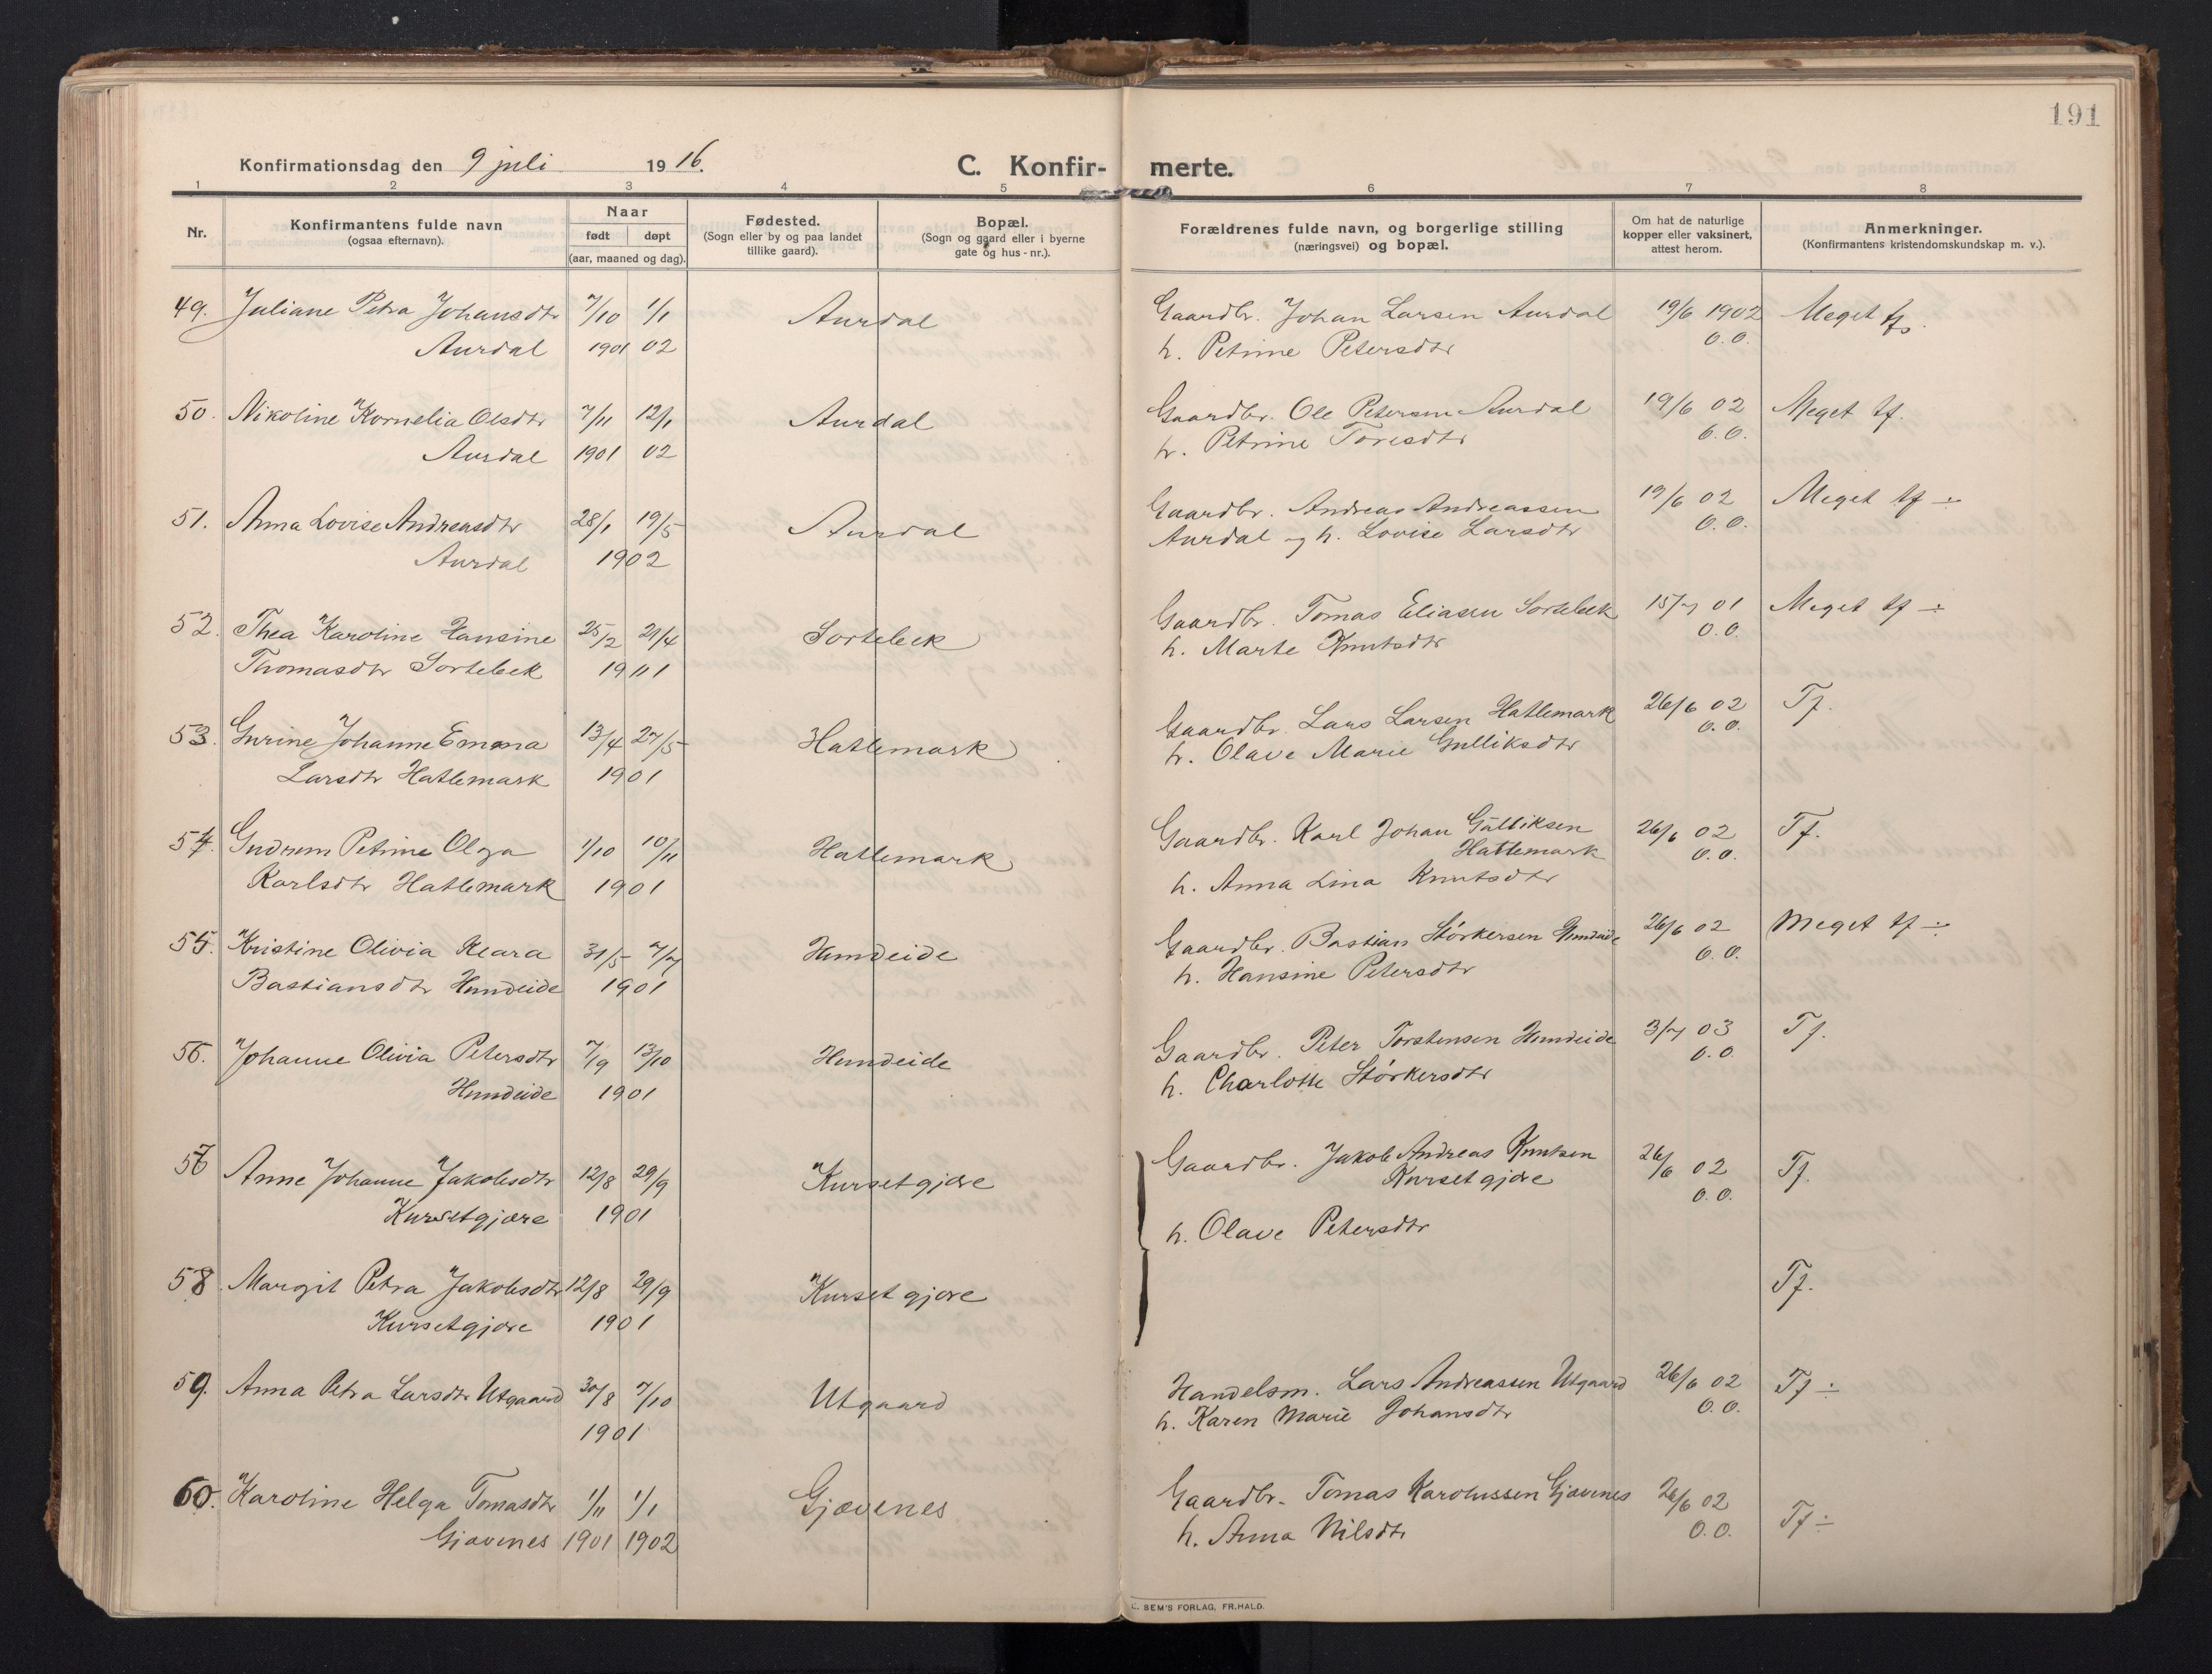 191
Konfirmationsdag den 9 juli 1916.
C. Konfir- merte.
1 2 3 4 5 6 7 8
Nr.
Konfirmantens fulde navn
(ogsaa efternavn).
Naar
født døpt
(aar, maaned og dag).
Fødested.
(Sogn eller by og paa landet
tillike gaard).
Bopæl.
(Sogn og gaard eller i byerne
gate og hus-nr.).
Forældrenes fulde navn, og borgerlige stilling
(næringsvei) og bopæl.
Om hat de naturlige
kopper eller vaksinert,
attest herom.
Anmerkninger.
(Konfirmantens kristendomskundskap m. v.).
49. Juliane Petra Johansdtr 7/10 1/1 Aurdal Gaardbr. Johan Larsen Aurdal 19/6 1902 Meget tfs.
Aurdal 1901 02 h. Petrine Petersdtr O.O.
50. Nikoline Kornelia Olsdtr 7/11 12/1 Aurdal Gaardbr. Ole Petersen Aurdal 19/6 02 Meget tf.
Aurdal 1901 02 h. Petrine Toresdtr O.O.
51. Anna Lovise Andreasdtr 28/1 19/5 Aurdal Gaardbr. Andreas Andreassen 19/6 02 Meget tf ÷
Aurdal 1902 Aurdal og h. Lovise Larsdtr O.O.
52. Thea Karoline Hansine 25/2 21/4 Sortebek Gaardbr. Tomas Eliasen Sortebek 15/7 01 Meget tf ÷
Thomasdtr Sortebek 1901 h. Marte Knutsdtr O.O.
53. Gurine Johanne Emma 13/4 27/5 Hatlemark Gaardbr. Lars Larsen Hatlemark 26/6 02 Tf.
Larsdtr Hatlemark 1901 h. Olave Marie Gulliksdtr O.O.
54. Gudrun Petrine Olga 1/10 10/11 Hatlemark Gaardbr. Karl Johan Gulliksen 26/6 02 Tf.
Hatlemark O.O.
Karlsdtr Hatlemark 1901 h. Anna Lina Knutsdtr
55. Kristine Olivia Klara 31/5 7/7 Hundeide Gaardbr. Bastian Størkersen Hundeide 26/6 02 Meget tf ÷
Bastiansdtr Hundeide 1901 h. Hansine Petersdtr O.O.
56. Johanne Olivia Petersdtr 7/9 13/10 Hundeide Gaardbr. Peter Torstensen Hundeide 3/7 03 Tf.
Hundeide 1901 h. Charlotte Størkersdtr O.O.
57 Anne Johanne Jakobsdtr 12/8 29/9 Kursetgjære Gaardbr. Jakob Andreas Knutsen 26/6 02 Tf.
Kursetgjære O.O.
Kursetgjære 1901 h. Olave Petersdtr
58. Margit Petra Jakobsdtr 12/8 29/9 Kursetgjære Tf.
Kursetgjære 1901
59. Anna Petra Larsdtr Utgaard 30/8 7/10 Utgaard Handelsm. Lars Andreassen Utgaard 26/6 02 Tf ÷
1901 h. Karen Marie Johansdtr O.O.
60. Karoline Helga Tomasdtr 1/11 1/1 Gjævenes Gaardbr. Tomas Karolussen Gjævenes 26/6 02 Tf ÷
Gjævenes 1901 1902 h. Anna Nilsdtr O.O.
SEM'S FORLAG, FR.HALD.